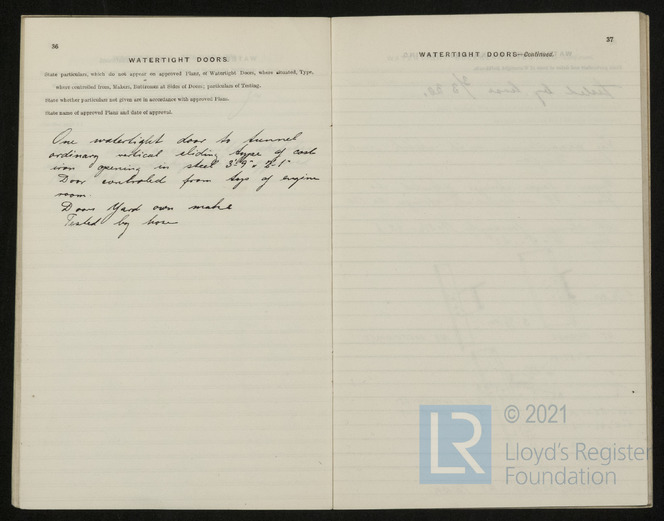 36
WATERTIGHT DOORS.
State particulars, which do not appear on approved Plans, of Watertight Doors, where situated, Type,
where controlled from, Makers, Buttresses at Sides of Doors; particulars of Testing.
State whether particulars not given are in accordance with approved Plans.
State name of approved Plans and date of approval.
One watertight door to tunnel
ordinary vertical sliding type of cast
iron opening in steel 3'-9" x 2'-1"
Door controlled from top of engine
room.
Doors Yard own make
Tested by hose
37
WATERTIGHT DOORS—Continued.
© 2021
LR
Lloyd's Register
Foundation